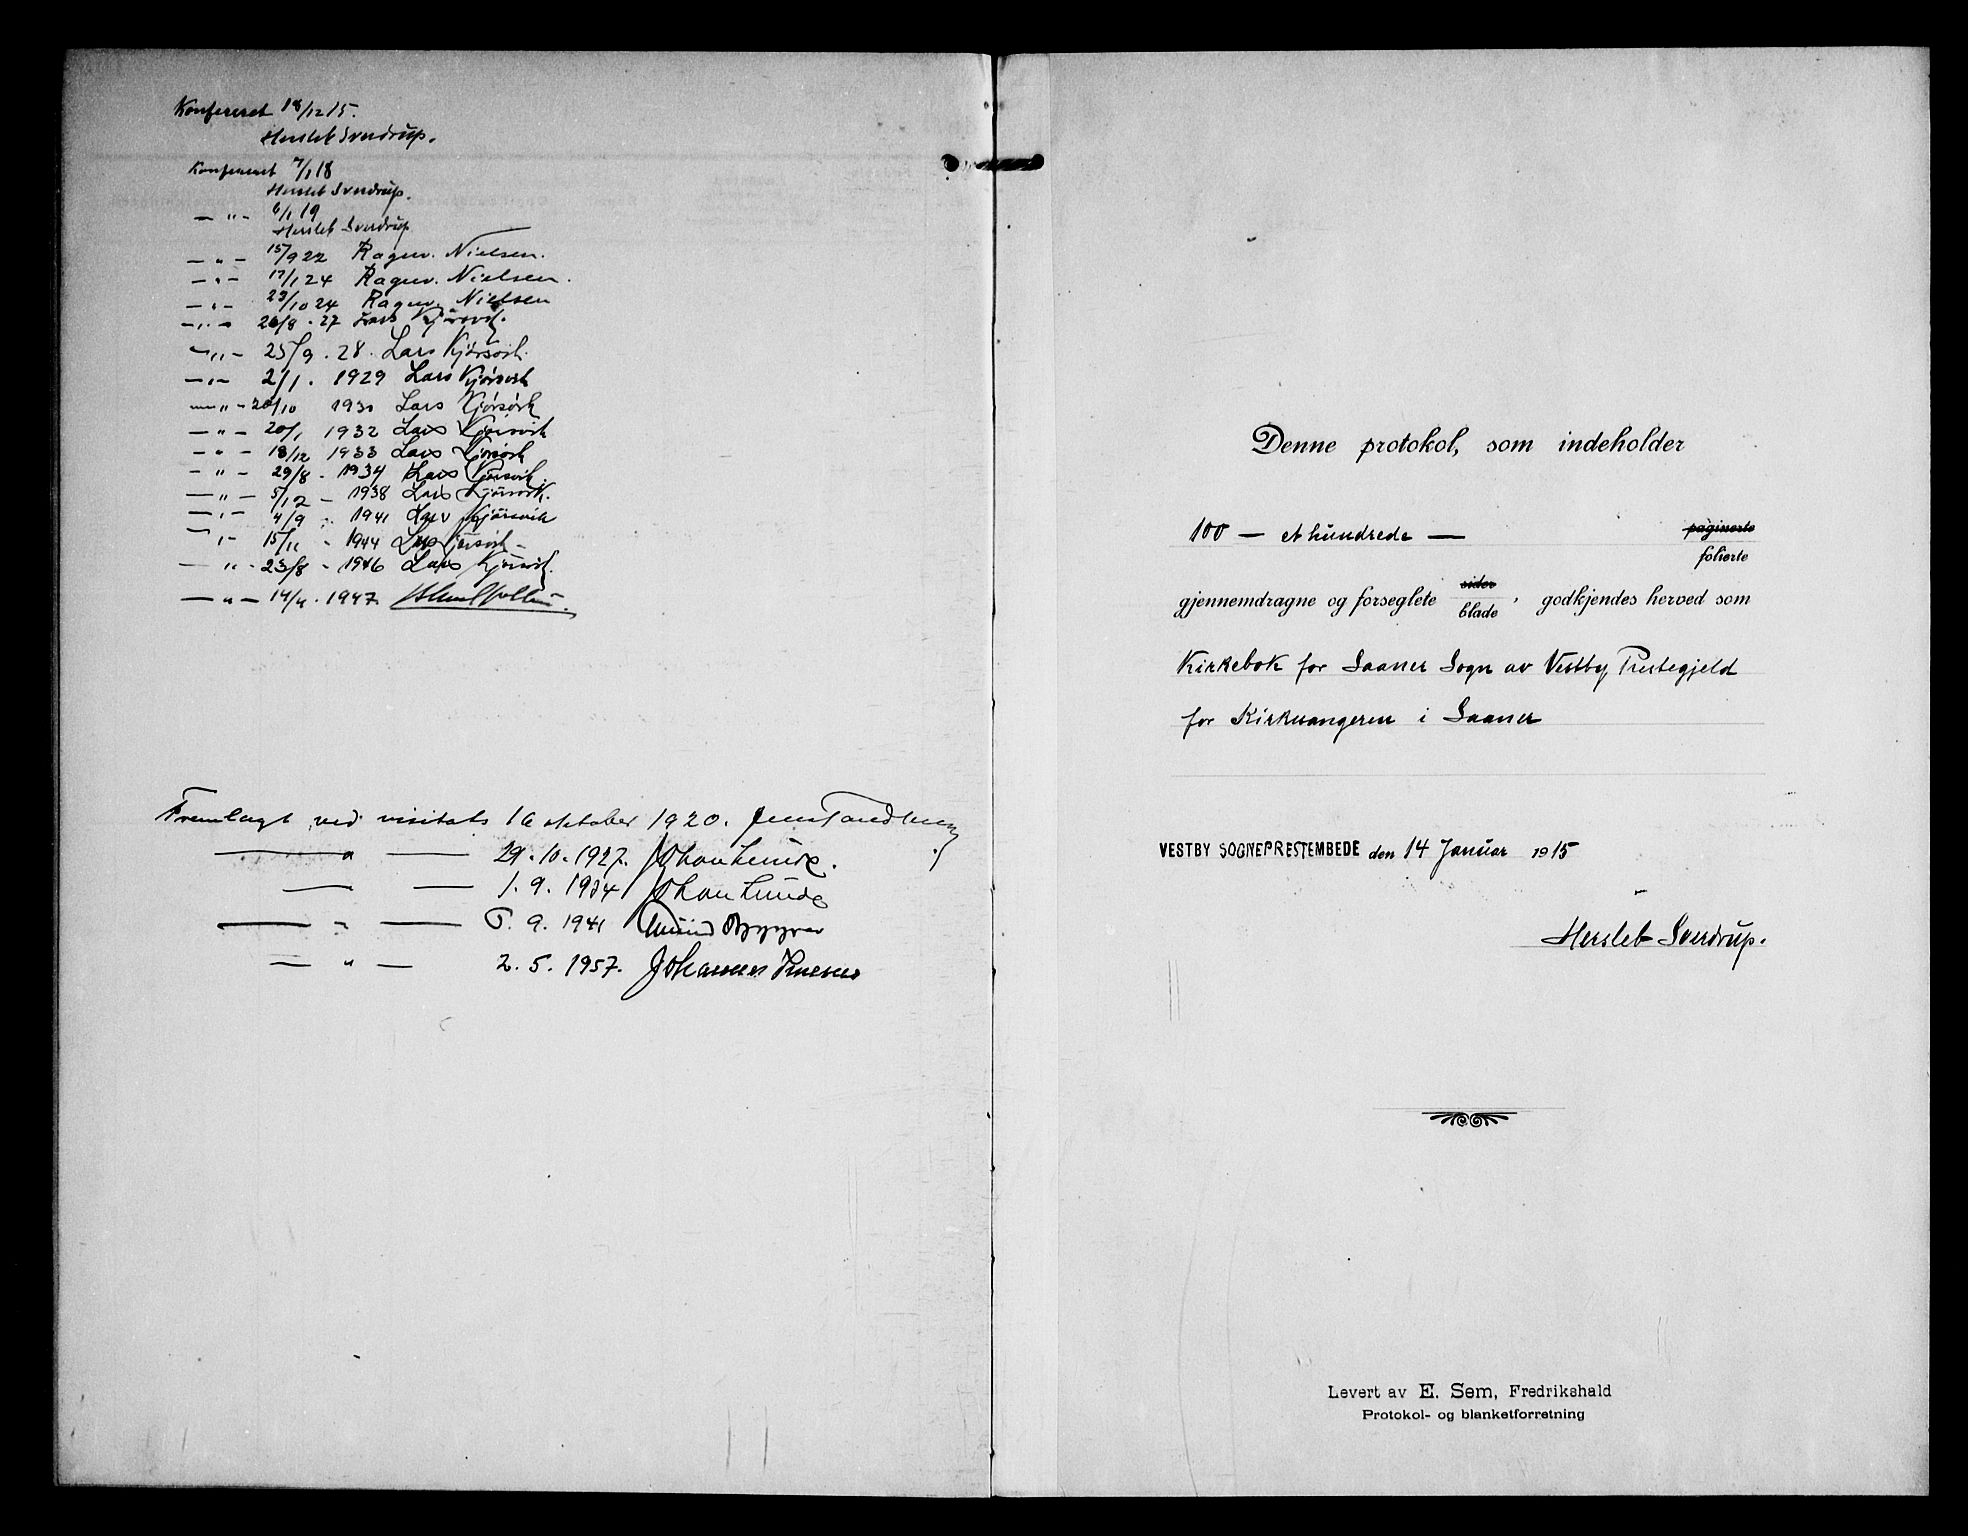 Konfereret 18/12 15.
Hersleb Sverdrup.
Konfereret 7/1 18
Hersleb Sverdrup.
— " — 6/1 19
Hersleb Sverdrup
— " — 15/9 22 Ragnv. Nielsen.
— " — 17/1 24 Ragnv. Nielsen.
— " — 23/10 24 Ragnv. Nielsen
— " — 26/8 . 27 Lars Kjørsvik.
— " — 25/9 . 28 . Lars Kjørsvik.
— " — 2/1 . 1929 Lars Kjørsvik
— " — 20/10 1930 Lars Kjørsvik
— " — 20/1 1932 Lars Kjørsvik
— " — 18/12 1933 Lars Kjørsvik
— " — 29/8 - 1934 Lars Kjørsvik.
— " — 5/12 - 1938 Lars Kjørsvik.
— " — 4/9 - 1941 Lars Kjørsvik
— " — 15/11 - 1944 Lars Kjørsvik
— " — 23/8 - 1946 Lars Kjørsvik.
— " — 14/4 . 1947
Fremlagt ved visitats 16 oktober 1920. Jens Tandberg.
— " — 29.10.1927. Johan Lunde.
— — 1.9.1934 Johan Lunde
— " — 5.9.1941
— " — 2.5.1957. Johannes Smemo
Denne protokol, som indeholder
100 — et hundrede — paginerte
folierte
gjennemdragne og forseglete sider
blade, godkjendes herved som
Kirkebok for Saaner Sogn av Vestby Prestegjeld
for Kirkesangeren i Saaner
VESTBY SOGNEPRESTEMBEDE den 14 Januar 1915
Hersleb Sverdrup.
Levert av E. Sem, Fredrikshald
Protokol- og blanketforretning